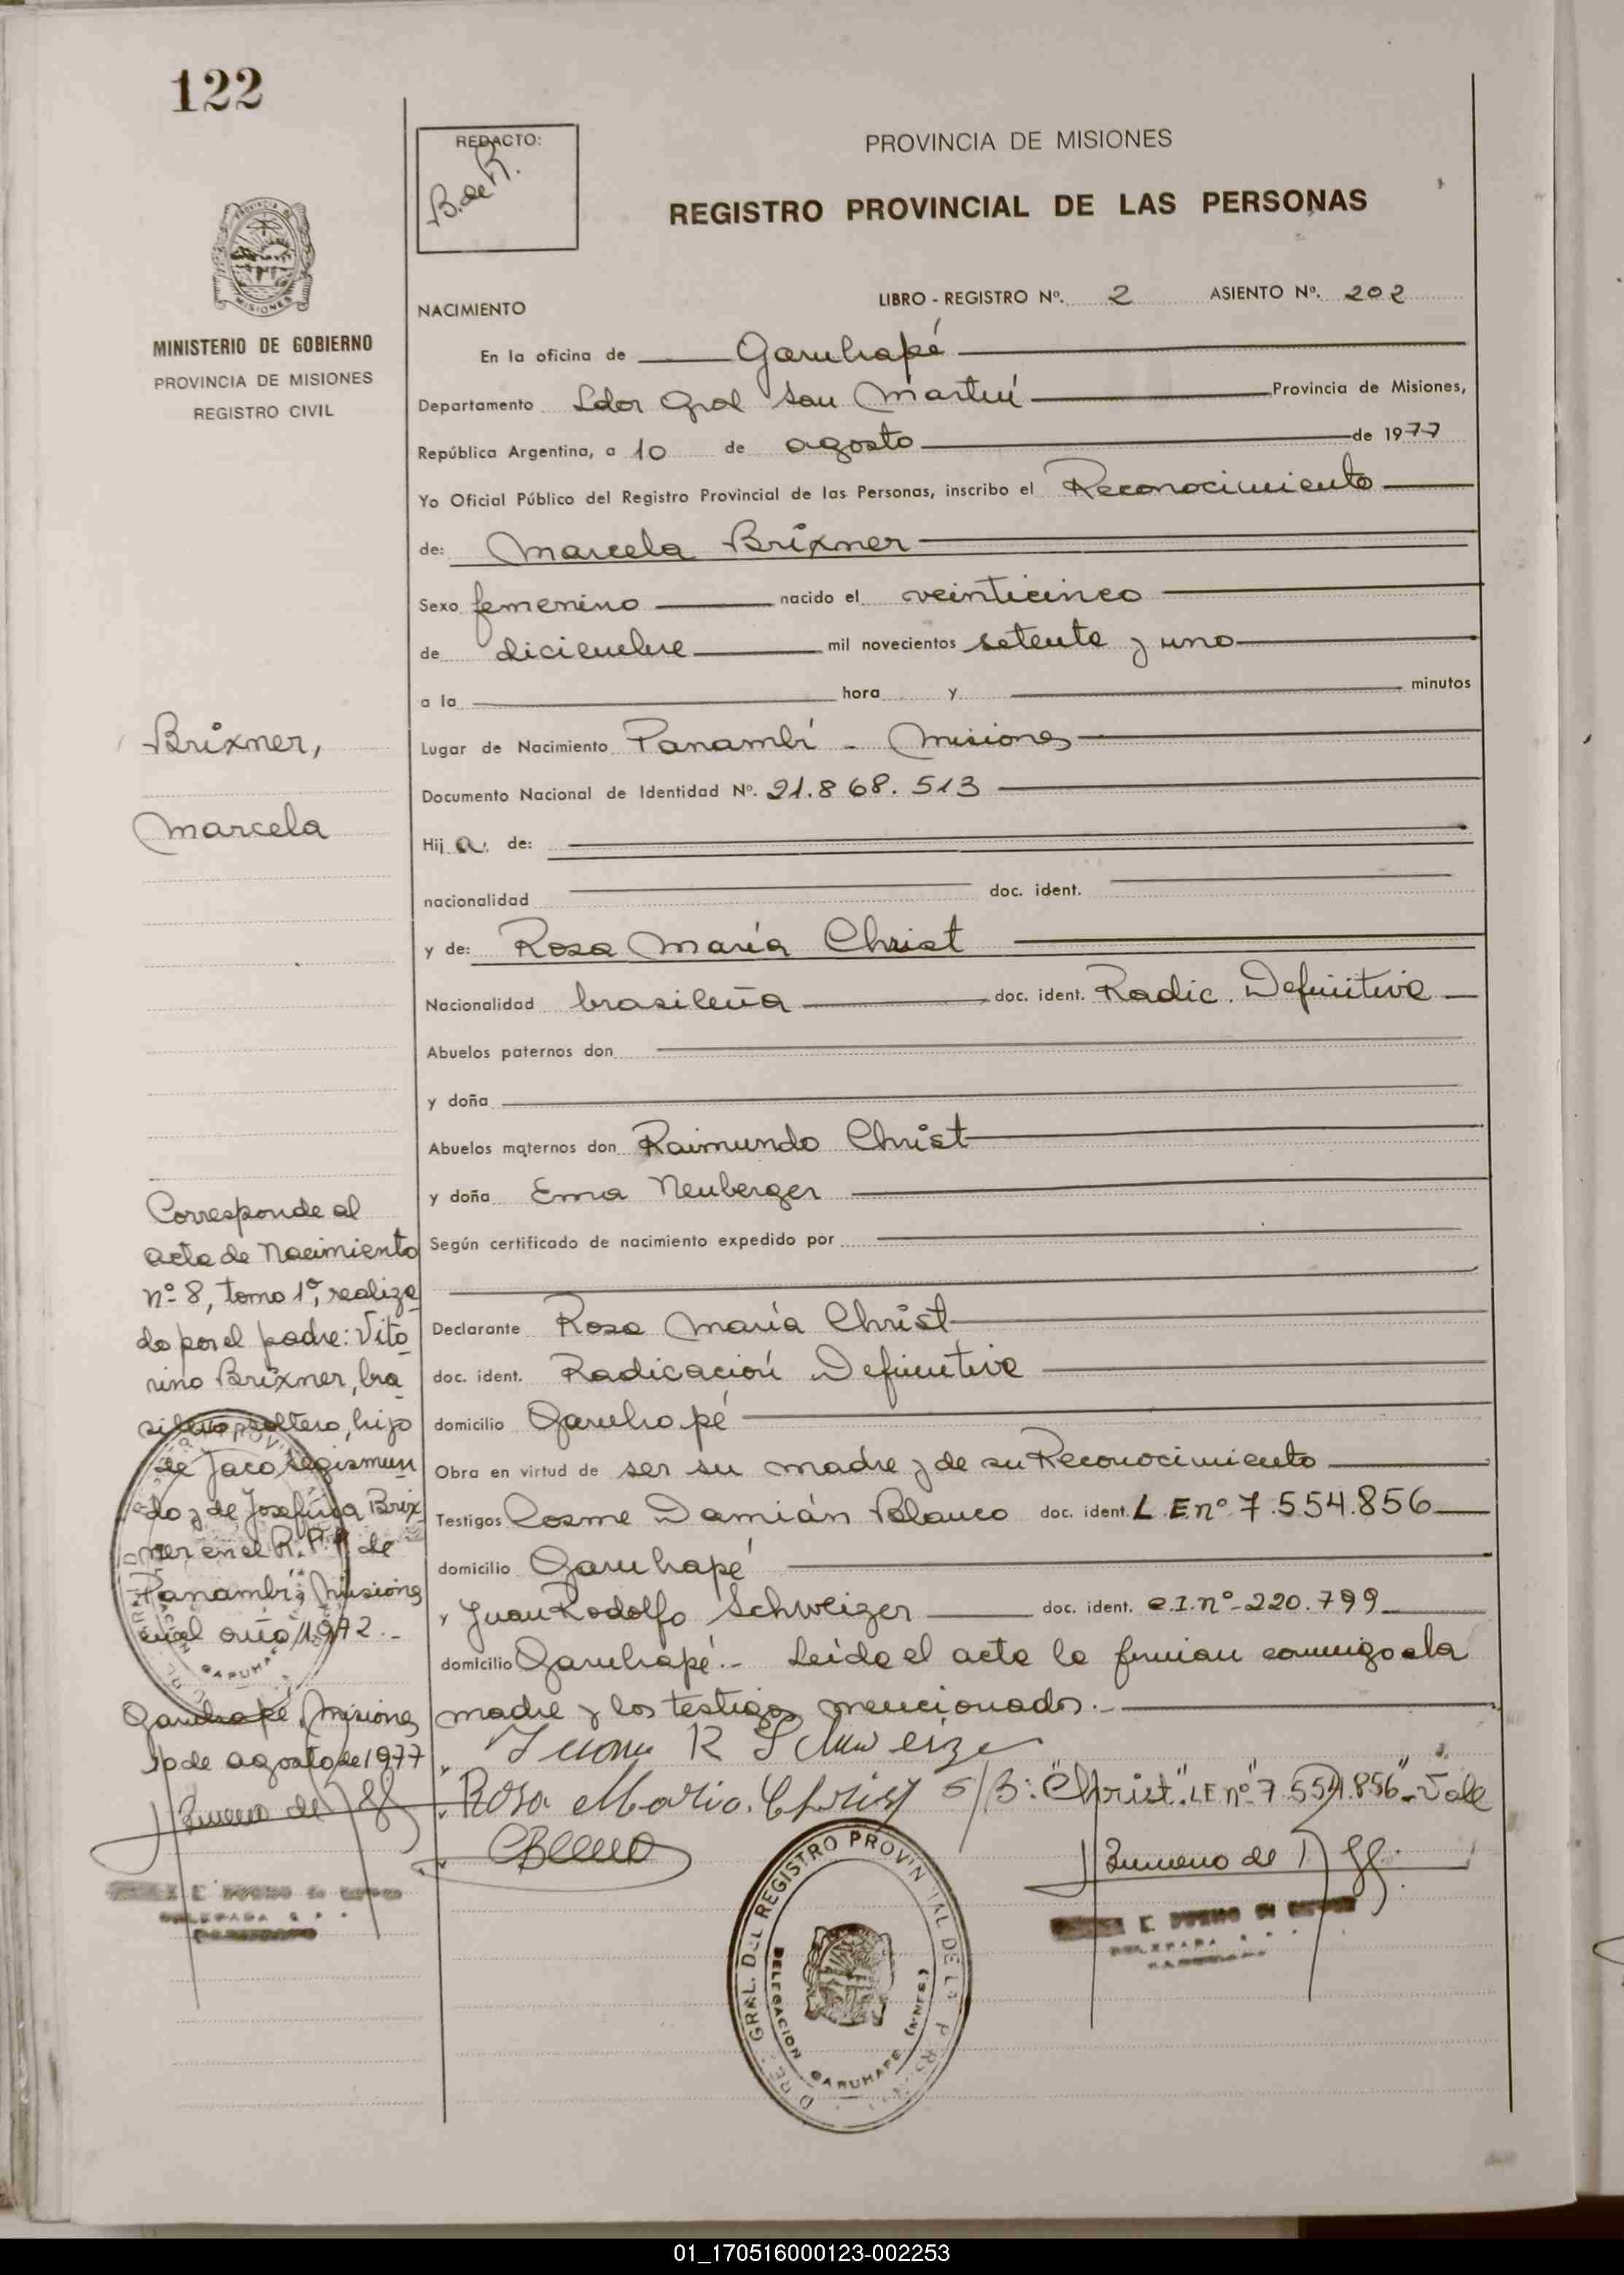 122
REDACTO:
B. de R.
PROVINCIA DE MISIONES
REGISTRO PROVINCIAL DE LAS PERSONAS
MINISTERIO DE GOBIERNO
PROVINCIA DE MISIONES
REGISTRO CIVIL
NACIMIENTO
LIBRO - REGISTRO Nº. 2 ASIENTO Nº. 202
En la oficina de Garuhapé
Departamento Ldor Gral San Martín Provincia de Misiones,
República Argentina, a 10 de agosto de 1977
Yo Oficial Público del Registro Provincial de las Personas, inscribo el Reconocimiento
de: Marcela Brixner
Sexo femenino nacido el veinticinco
de diciembre mil novecientos setenta y uno
a la hora y minutos
Lugar de Nacimiento Panambí - Misiones
Documento Nacional de Identidad Nº. 21.868.513
Hij a. de:
nacionalidad doc. ident.
y de: Rosa María Christ
Nacionalidad brasileña doc. ident. Radic. Definitiva
Abuelos paternos don
y doña
Abuelos maternos don Raimundo Christ
y doña Ema Neuberger
Según certificado de nacimiento expedido por
Declarante Rosa María Christ
doc. ident. Radicación Definitiva
domicilio Garuhapé
Obra en virtud de ser su madre y de su Reconocimiento
Testigos Cosme Damián Blanco doc. ident. L.E nº 7.554.856
domicilio Garuhapé
y Juan Rodolfo Schweizer doc. ident. C.I. nº - 220.799
domicilio Garuhapé.- Leída el acta la firman conmigo la
madre y los testigos mencionados.-
Juan R Schweizer
Rosa Maria Christ S/B: "Christ". "LE nº 7.554.856" - Vale
CBlanco
Brixner,
Marcela
Corresponde al
acta de Nacimiento
nº 8, tomo 1º, realiza
do por el padre: Vito
rino Brixner, bra
sileño, soltero, hijo
de Jaco Segismun
do y de Josefina Brix
ner en el R.P.P. de
Panambí, Misiones
en el año 1972.-
Garuhapé, Misiones
10 de agosto de 1977
REGISTRO PROVIN
DELEGACION GARUHAPE (MNES)
01_170516000123-002253